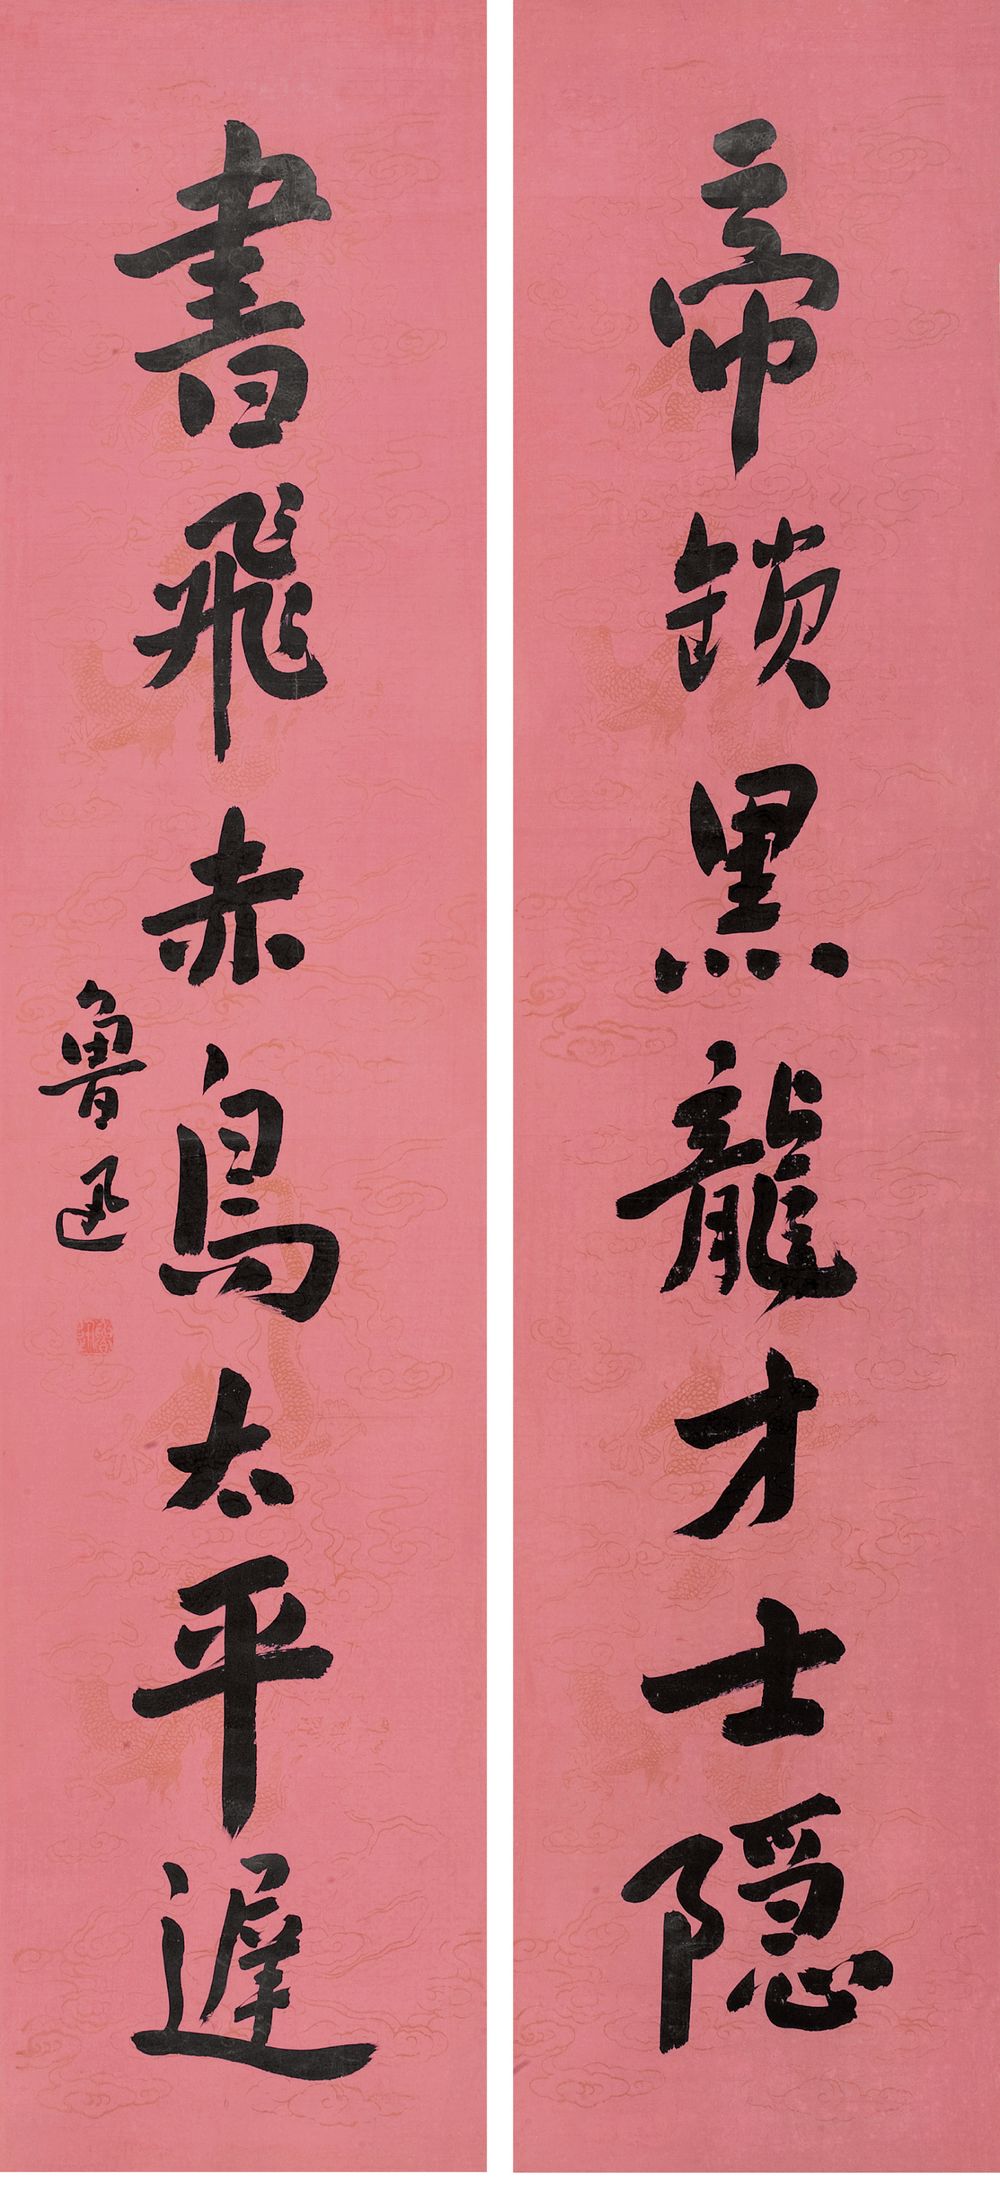 帝鎖黑龍才士隱
書飛赤鳥太平遲
魯迅